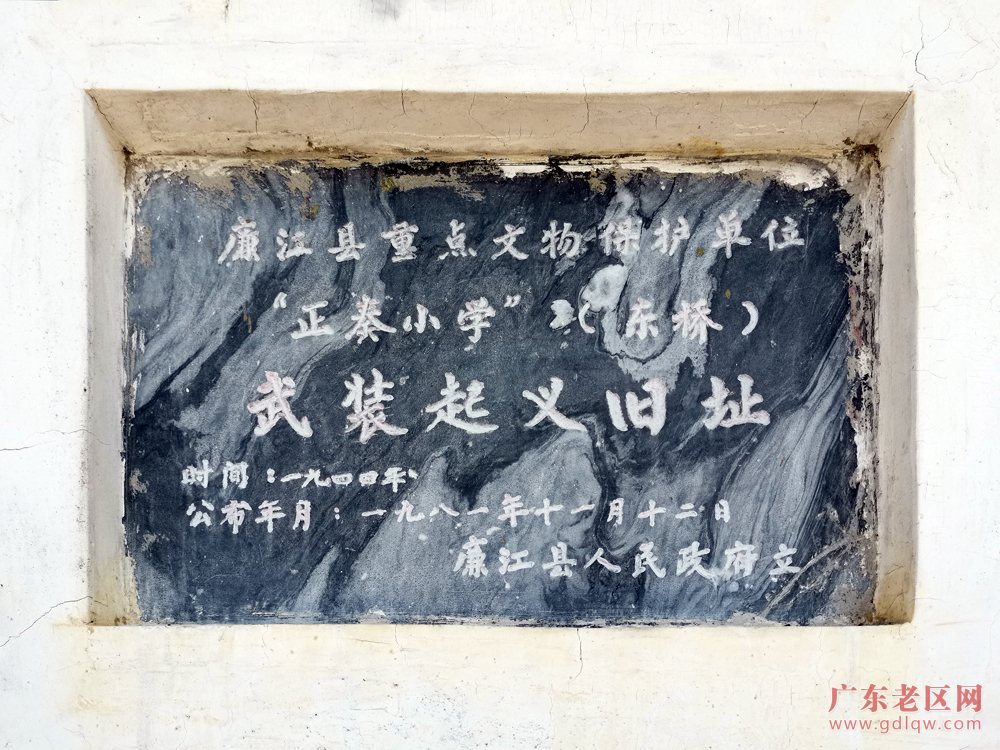 廉江县重点文物保护单位
“正奏小学”（东桥）
武装起义旧址
时间：一九四四年
公布年月：一九八一年十一月十二日
廉江县人民政府立
广东老区网
www.gdlqw.com